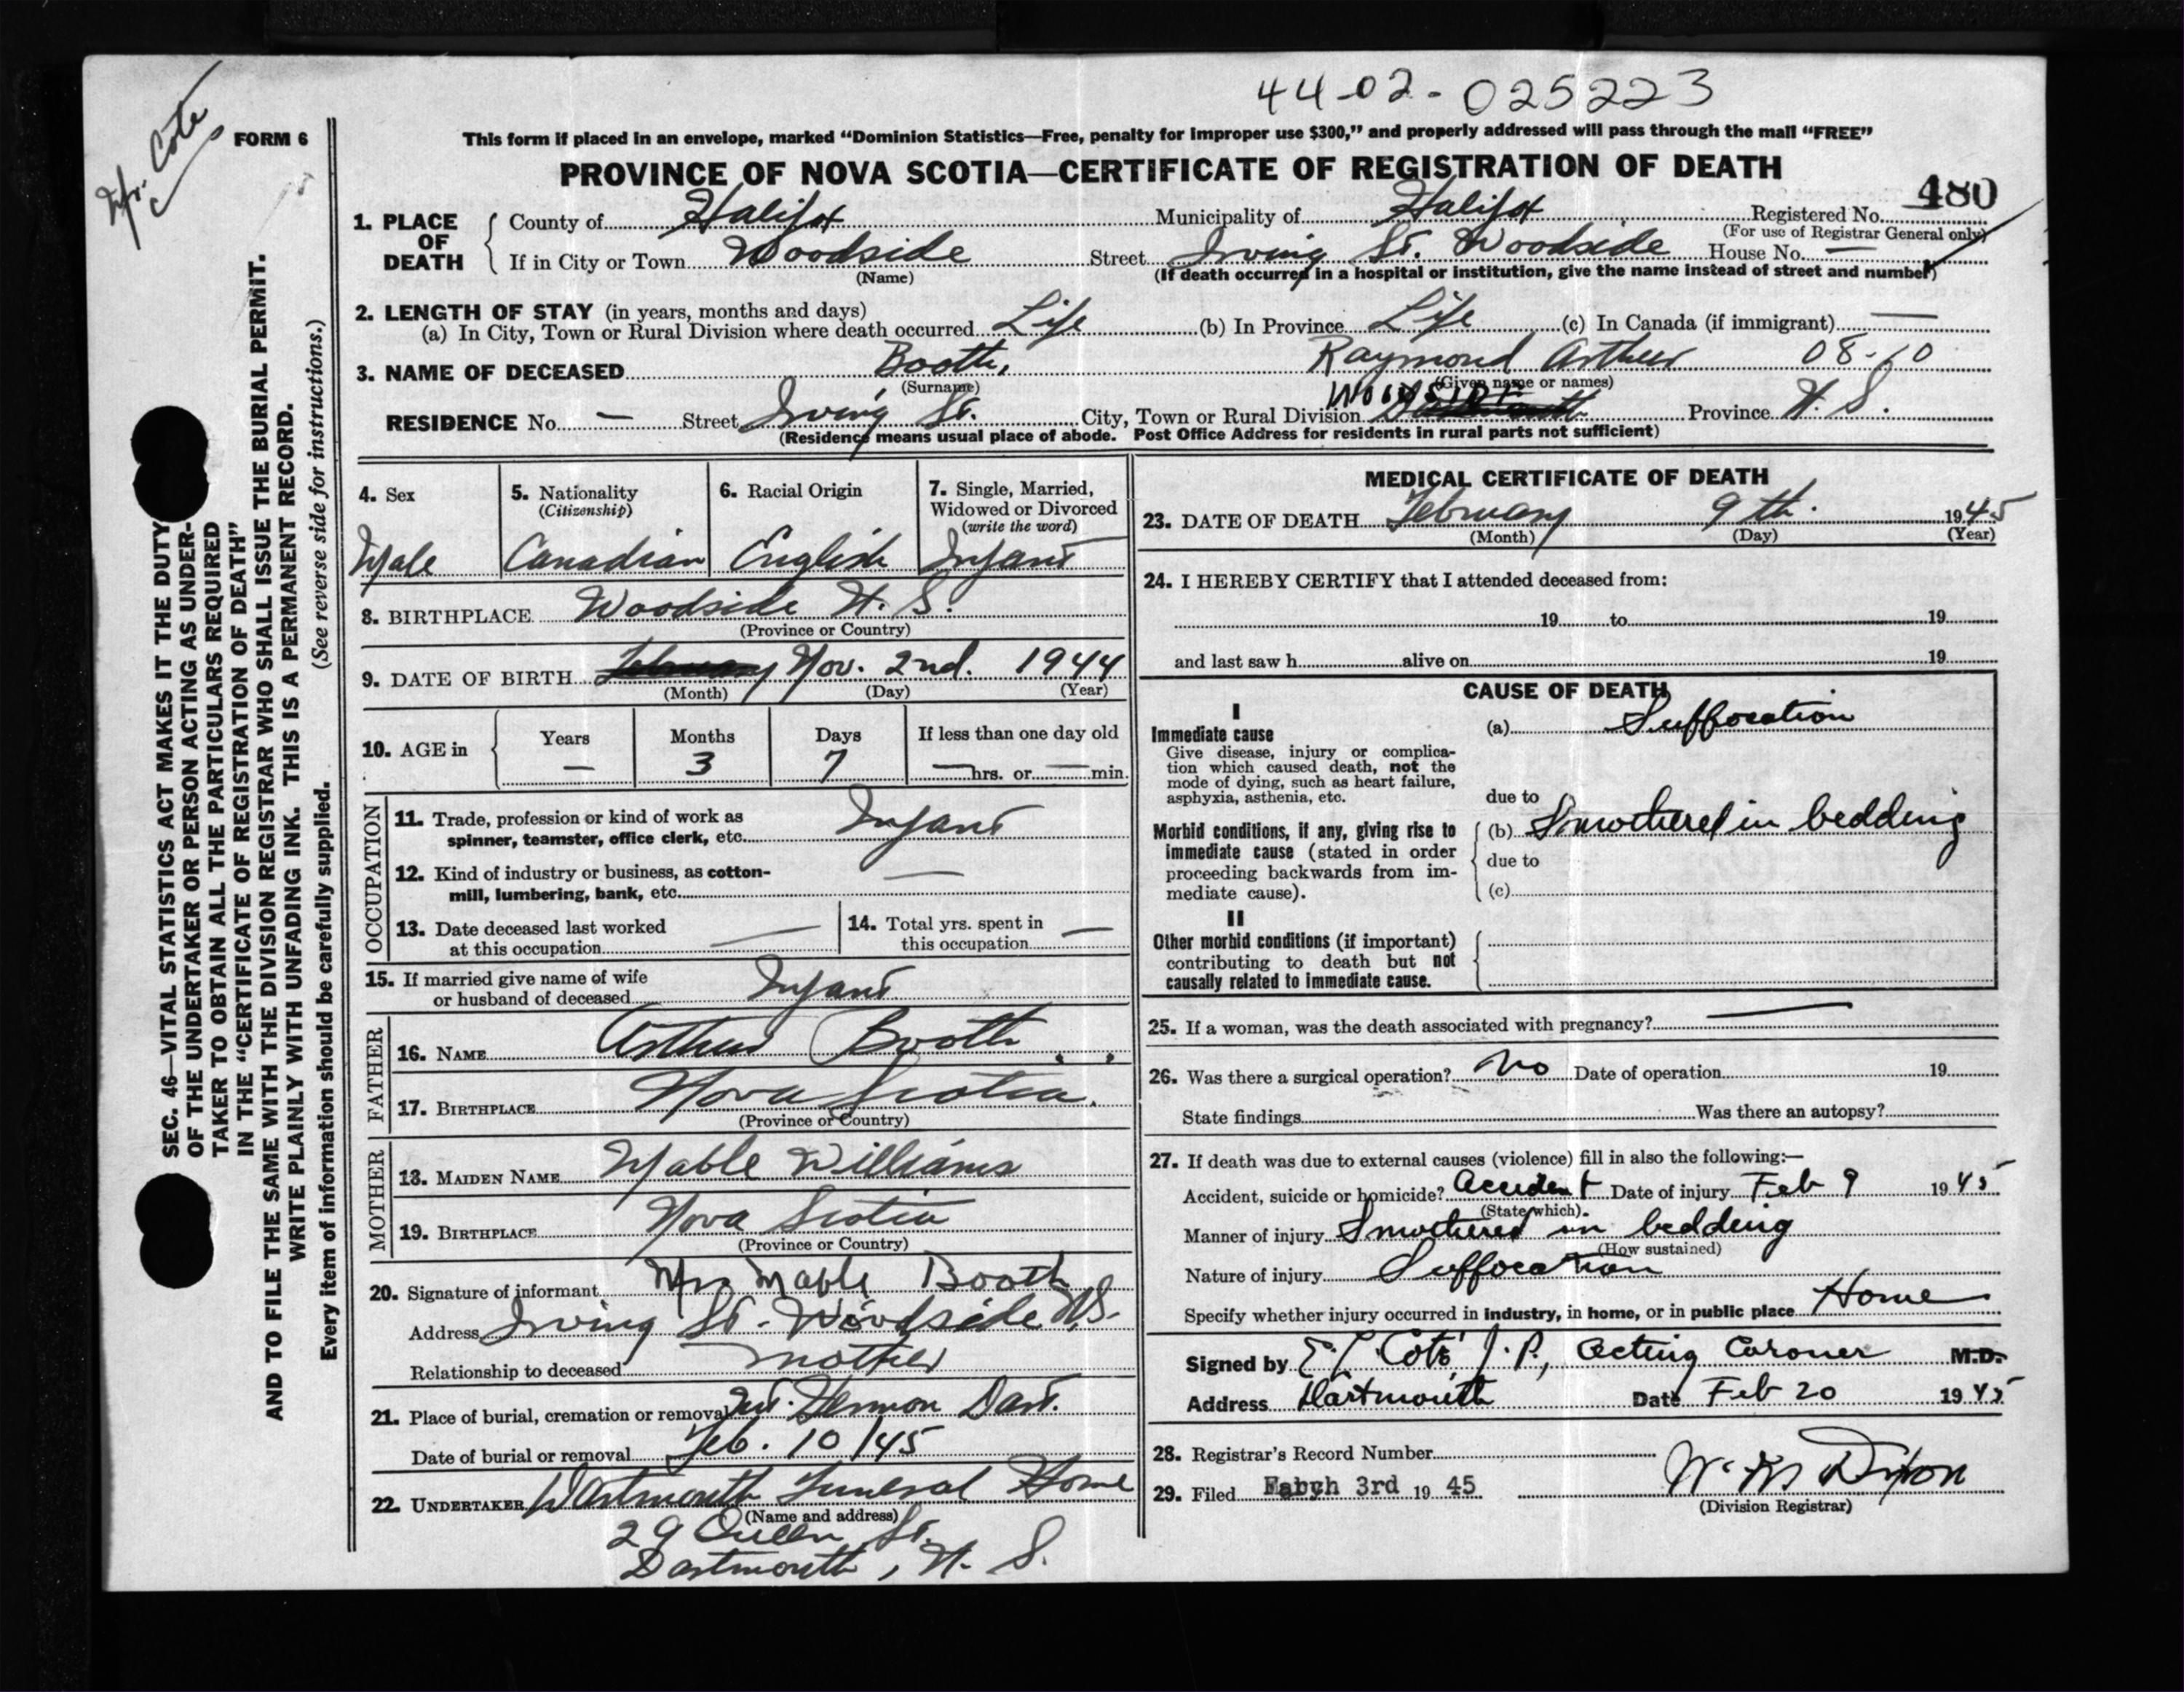 44-02-025223
Mr. Cote
FORM 6
This form if placed in an envelope, marked “Dominion Statistics—Free, penalty for improper use $300,” and properly addressed will pass through the mail “FREE”
PROVINCE OF NOVA SCOTIA—CERTIFICATE OF REGISTRATION OF DEATH
480
1. PLACE OF DEATH County of Halifax Municipality of Halifax Registered No.
(For use of Registrar General only)
If in City or Town Woodside Street Irving St. Woodside House No. —
(Name) (If death occurred in a hospital or institution, give the name instead of street and number)
2. LENGTH OF STAY (in years, months and days)
(a) In City, Town or Rural Division where death occurred Life (b) In Province Life (c) In Canada (if immigrant) —
3. NAME OF DECEASED Booth, Raymond Arthur 08-10
(Surname) (Given name or names)
RESIDENCE No. — Street Irving St. City, Town or Rural Division WOODSIDE Dartmouth Province N. S.
(Residence means usual place of abode. Post Office Address for residents in rural parts not sufficient)
SEC. 46—VITAL STATISTICS ACT MAKES IT THE DUTY
OF THE UNDERTAKER OR PERSON ACTING AS UNDER-
TAKER TO OBTAIN ALL THE PARTICULARS REQUIRED
IN THE “CERTIFICATE OF REGISTRATION OF DEATH”
AND TO FILE THE SAME WITH THE DIVISION REGISTRAR WHO SHALL ISSUE THE BURIAL PERMIT.
WRITE PLAINLY WITH UNFADING INK. THIS IS A PERMANENT RECORD.
Every item of information should be carefully supplied. (See reverse side for instructions.)
4. Sex 5. Nationality 6. Racial Origin 7. Single, Married,
(Citizenship) Widowed or Divorced
(write the word)
Male Canadian English Infant
8. BIRTHPLACE Woodside N. S.
(Province or Country)
9. DATE OF BIRTH February Nov. 2nd. 1944
(Month) (Day) (Year)
10. AGE in Years Months Days If less than one day old
— 3 7 — hrs. or — min.
OCCUPATION
11. Trade, profession or kind of work as
spinner, teamster, office clerk, etc. Infant
12. Kind of industry or business, as cotton-
mill, lumbering, bank, etc. —
13. Date deceased last worked
at this occupation —
14. Total yrs. spent in
this occupation —
15. If married give name of wife
or husband of deceased Infant
FATHER
16. NAME Arthur Booth
17. BIRTHPLACE Nova Scotia.
(Province or Country)
MOTHER
18. MAIDEN NAME Mable Williams
19. BIRTHPLACE Nova Scotia
(Province or Country)
20. Signature of informant Mrs Mable Booth
Address Irving St. Woodside N.S.
Relationship to deceased mother
21. Place of burial, cremation or removal Mt. Hermon Dart.
Date of burial or removal Feb. 10/45
22. UNDERTAKER Dartmouth Funeral Home
(Name and address)
29 Queen St.
Dartmouth, N. S.
MEDICAL CERTIFICATE OF DEATH
23. DATE OF DEATH February 9th. 1945
(Month) (Day) (Year)
24. I HEREBY CERTIFY that I attended deceased from:
19 to 19
and last saw h alive on 19
CAUSE OF DEATH
I
Immediate cause (a) Suffocation
Give disease, injury or complica-
tion which caused death, not the
mode of dying, such as heart failure,
asphyxia, asthenia, etc.
due to
Morbid conditions, if any, giving rise to (b) Smothered in bedding
immediate cause (stated in order due to
proceeding backwards from im-
mediate cause). (c)
II
Other morbid conditions (if important)
contributing to death but not
causally related to immediate cause.
25. If a woman, was the death associated with pregnancy? —
26. Was there a surgical operation? No Date of operation 19
State findings Was there an autopsy?
27. If death was due to external causes (violence) fill in also the following:—
Accident, suicide or homicide? Accident Date of injury Feb 9 1945
(State which).
Manner of injury Smothered in bedding
(How sustained)
Nature of injury Suffocation
Specify whether injury occurred in industry, in home, or in public place Home
Signed by E. L. Coté J. P., Acting Coroner M.D.
Address Dartmouth Date Feb 20 1945
28. Registrar's Record Number
29. Filed March 3rd 19 45 W. M. Dixon
(Division Registrar)